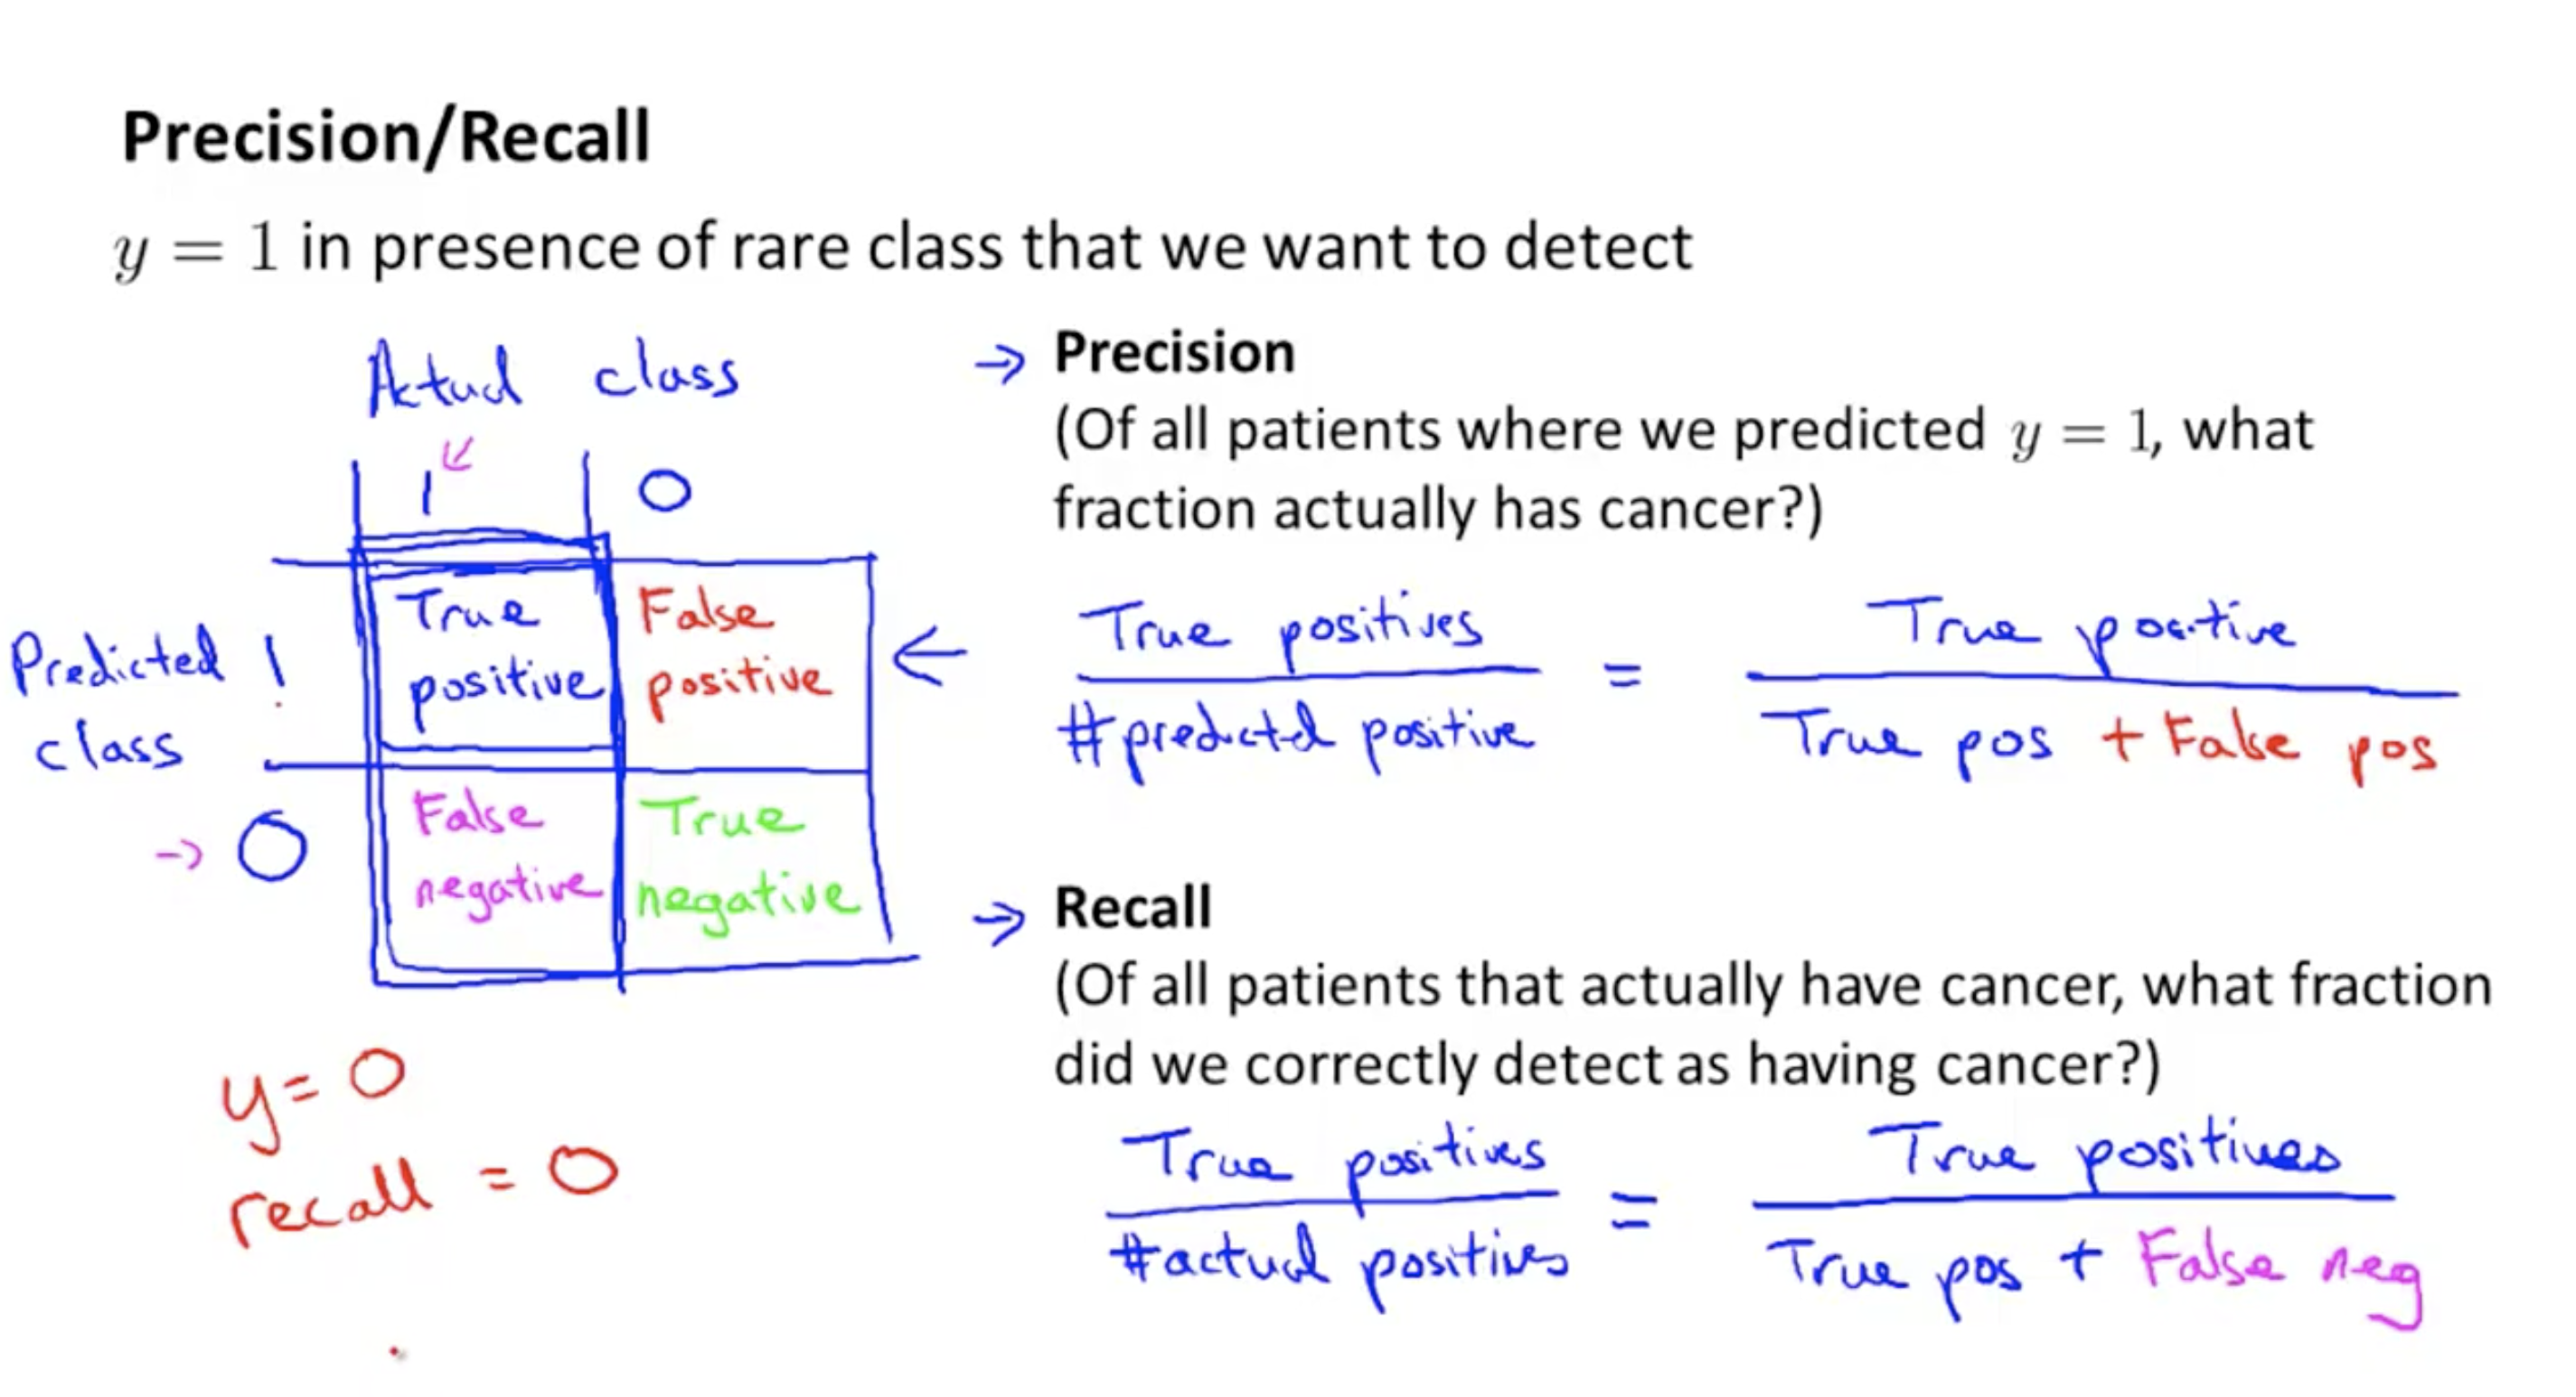 Precision/Recall
y = 1 in presence of rare class that we want to detect
Actual class
1 0
Predicted class
1
0
True positive
False positive
False negative
True negative
y = 0
recall = 0
→ Precision
(Of all patients where we predicted y = 1, what
fraction actually has cancer?)
True positives
#predicted positive
=
True positive
True pos + False pos
→ Recall
(Of all patients that actually have cancer, what fraction
did we correctly detect as having cancer?)
True positives
#actual positives
=
True positives
True pos + False neg